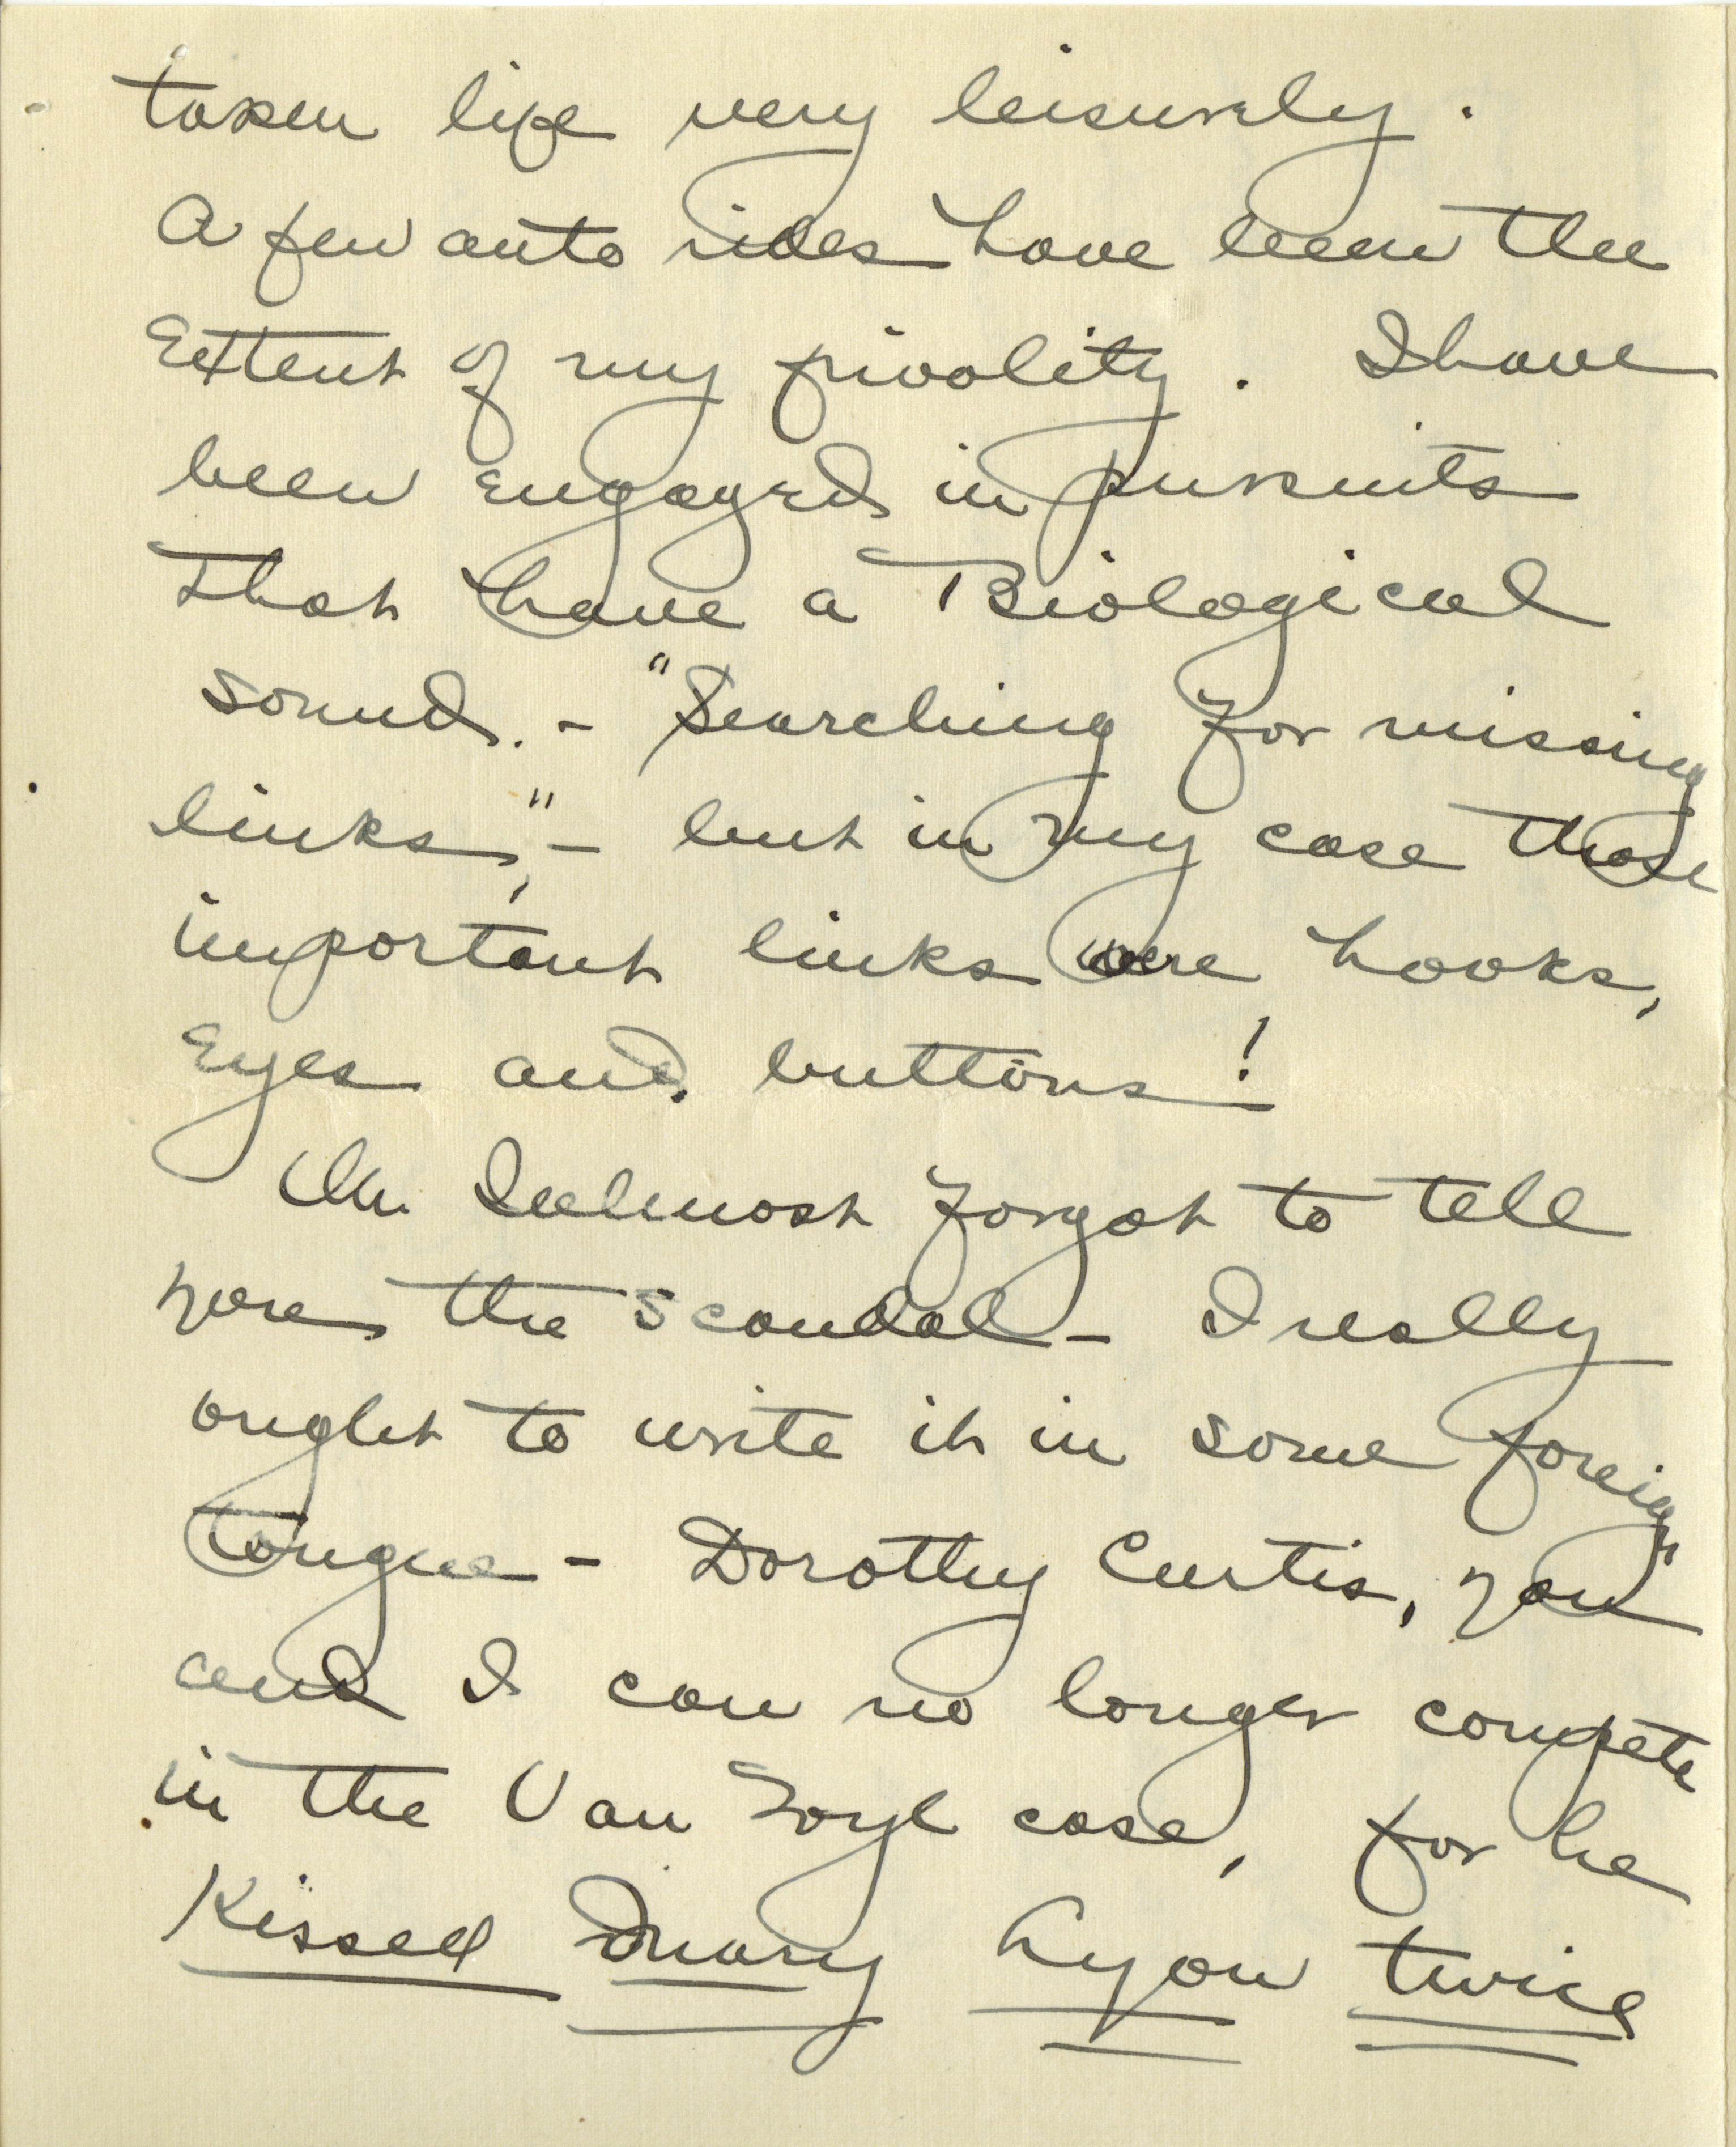 taken life very leisurely.
A few auto rides have been the
Extent of my frivolity. I have
been Engaged in pursuits
that have a Biological
sound. - "Searching for missing
links," - but in my case those
important links were hooks,
Eyes and buttons!
Oh. I almost forgot to tell
you the scandal - I really
ought to write it in some foreign
tongue - Dorothy Curtis, you
and I can no longer compete
in the Van case, for he
Kissed Mary Lyon twice